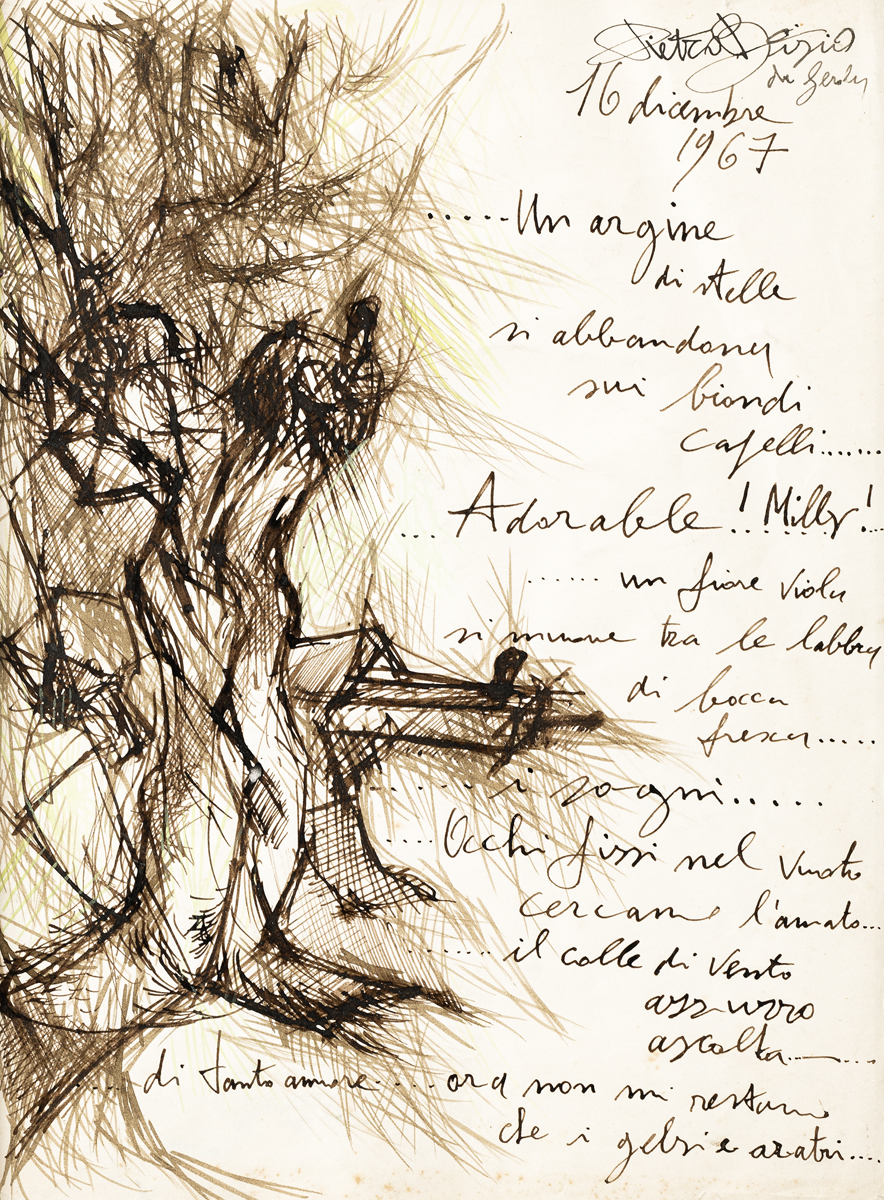 Pietro
16 dicembre
1967
.....Un argine
di stelle
si abbandona
sui biondi
capelli......
...Adorabile! Milly!...
...... un fiore viola
si muove tra le labbra
di bocca
fresca.....
...... i sogni.....
....Occhi fissi nel vuoto
cercano l'amato...
....... il colle di vento
azzurro
ascolta.......
.....di tanto amore..... ora non mi restano
che i gelsi e aratri....